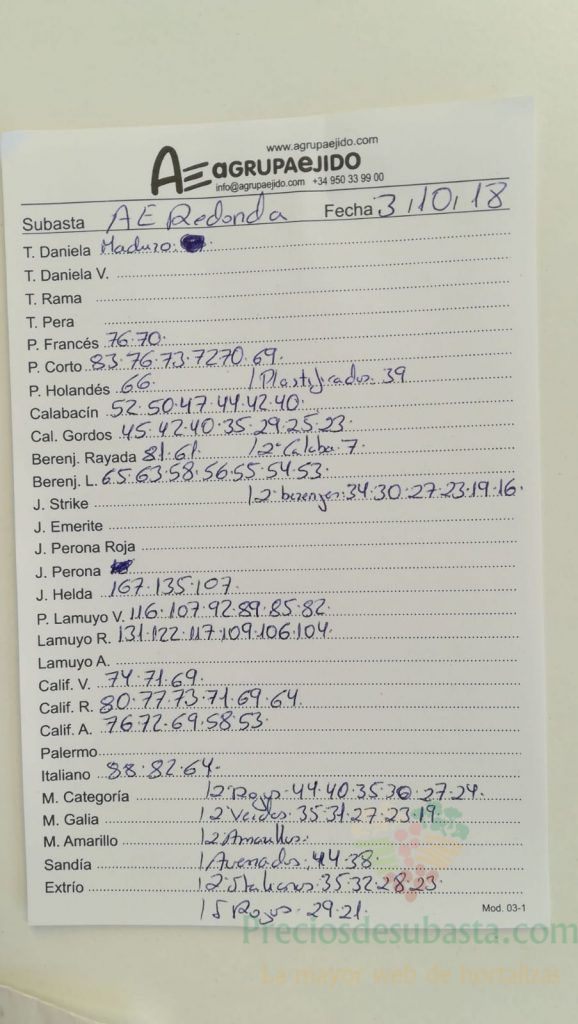 www.agrupaejido.com
AE aGRUPAeJIDO
info@agrupaejido.com +34 950 33 99 00
Subasta AE Redonda Fecha 3,10,18
T. Daniela Maduro.
T. Daniela V.
T. Rama
T. Pera
P. Francés 76.70.
P. Corto 83.76.73.7270.69.
P. Holandés 66. / Plastificados. 39
Calabacín 52.50.47.44.42.40.
Cal. Gordos 45.42.40.35.29.25.23.
Berenj. Rayada 81.61. / 2ª Calaba. 7.
Berenj. L. 65.63.58.56.55.54.53.
J. Strike / 2ª berenjas.34.30.27.23.19.16.
J. Emerite
J. Perona Roja
J. Perona
J. Helda 167.135.107.
P. Lamuyo V. 116.107.92.89.85.82.
Lamuyo R. 131.122.117.109.106.104.
Lamuyo A.
Calif. V. 74.71.69.
Calif. R. 80.77.73.71.69.64.
Calif. A. 76.72.69.58.53.
Palermo
Italiano 88.82.64.
M. Categoría / 2ª Rojos.44.40.35.30.27.24.
M. Galia / 2ª Verdes.35.31.27.23.19.
M. Amarillo / 2ª Amarillos.
Sandía / Asurcados.44.38.
Extrío / 2ª Italianos.35.32.28.23.
/ S Rojos. 29.21.
Mod. 03-1
Preciosdesubasta.com
La mayor web de hortalizas